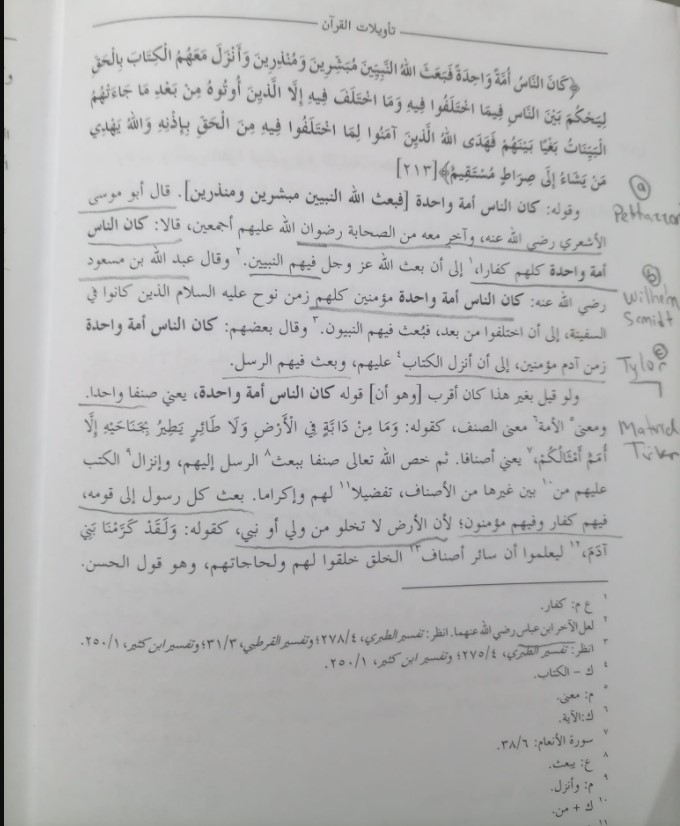 تأويلات القرآن
﴿كَانَ النَّاسُ أُمَّةً وَاحِدَةً فَبَعَثَ اللهُ النَّبِيِّينَ مُبَشِّرِينَ وَمُنْذِرِينَ وَأَنْزَلَ مَعَهُمُ الْكِتَابَ بِالْحَقِّ
لِيَحْكُمَ بَيْنَ النَّاسِ فِيمَا اخْتَلَفُوا فِيهِ وَمَا اخْتَلَفَ فِيهِ إِلَّا الَّذِينَ أُوتُوهُ مِنْ بَعْدِ مَا جَاءَتْهُمُ
الْبَيِّنَاتُ بَغْيًا بَيْنَهُمْ فَهَدَى اللهُ الَّذِينَ آمَنُوا لِمَا اخْتَلَفُوا فِيهِ مِنَ الْحَقِّ بِإِذْنِهِ وَاللهُ يَهْدِي
مَنْ يَشَاءُ إِلَى صِرَاطٍ مُسْتَقِيمٍ﴾[٢١٣]
وقوله: كان الناس أمة واحدة [فبعث الله النبيين مبشرين ومنذرين]. قال أبو موسى
الأشعري رضي الله عنه، وآخر معه من الصحابة رضوان الله عليهم أجمعين، قالا: كان الناس
أمة واحدة كلهم كفارا،١ إلى أن بعث الله عز وجل فيهم النبيين.٢ وقال عبد الله بن مسعود
رضي الله عنه: كان الناس أمة واحدة مؤمنين كلهم زمن نوح عليه السلام الذين كانوا في
السفينة، إلى أن اختلفوا من بعد، فبُعث فيهم النبيون.٣ وقال بعضهم: كان الناس أمة واحدة
زمن آدم مؤمنين، إلى أن أنزل الكتاب٤ عليهم، وبعث فيهم الرسل.
ولو قيل بغير هذا كان أقرب [وهو أن] قوله كان الناس أمة واحدة، يعني صنفا واحدا.
ومعنى٥ الأمة٦ معنى الصنف، كقوله: وَمَا مِنْ دَابَّةٍ فِي الْأَرْضِ وَلَا طَائِرٍ يَطِيرُ بِجَنَاحَيْهِ إِلَّا
أُمَمٌ أَمْثَالُكُمْ،٧ يعني أصنافا. ثم خص الله تعالى صنفا ببعث٨ الرسل إليهم، وإنزال٩ الكتب
عليهم من١٠ بين غيرها من الأصناف، تفضيلا١١ لهم وإكراما. بعث كل رسول إلى قومه،
فيهم كفار وفيهم مؤمنون؛ لأن الأرض لا تخلو من ولي أو نبي، كقوله: وَلَقَدْ كَرَّمْنَا بَنِي
آدَمَ،١٢ ليعلموا أن سائر أصناف١٣ الخلق خلقوا لهم ولحاجاتهم، وهو قول الحسن.
a
Pettazzoni
b
Wilhelm
Scmidt
c
Tylor
١ ع م: كفار.
٢ لعل الآخر ابن عباس رضي الله عنهما. انظر: تفسير الطبري، ٢٧٨/٤؛ وتفسير القرطبي، ٣١/٣؛ وتفسير ابن كثير، ٢٥٠/١.
٣ انظر: تفسير الطبري، ٢٧٥/٤؛ وتفسير ابن كثير، ٢٥٠/١.
٤ ك – الكتاب.
٥ م: معنى.
٦ ك:الآية.
٧ سورة الأنعام: ٣٨/٦.
٨ ع: يبعث.
٩ م: وأنزل.
١٠ ك + من.
١١